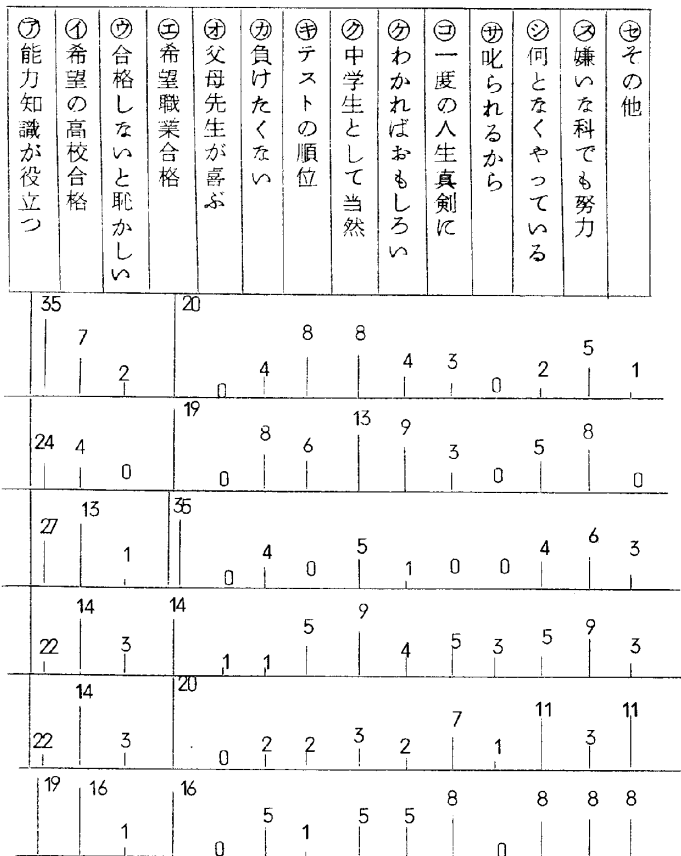 ㋐能力知識が役立つ
㋑希望の高校合格
㋒合格しないと恥かしい
㋓希望職業合格
㋔父母先生が喜ぶ
㋕負けたくない
㋖テストの順位
㋗中学生として当然
㋘わかればおもしろい
㋙一度の人生真剣に
㋚叱られるから
㋛何となくやっている
㋜嫌いな科でも努力
㋝その他
35 7 2 20 0 4 8 8 4 3 0 2 5 1
24 4 0 19 0 8 6 13 9 3 0 5 8 0
27 13 1 35 0 4 0 5 1 0 0 4 6 3
22 14 3 14 1 1 5 9 4 5 3 5 9 3
22 14 3 20 0 2 2 3 2 7 1 11 3 11
19 16 1 16 0 5 1 5 5 8 0 8 8 8